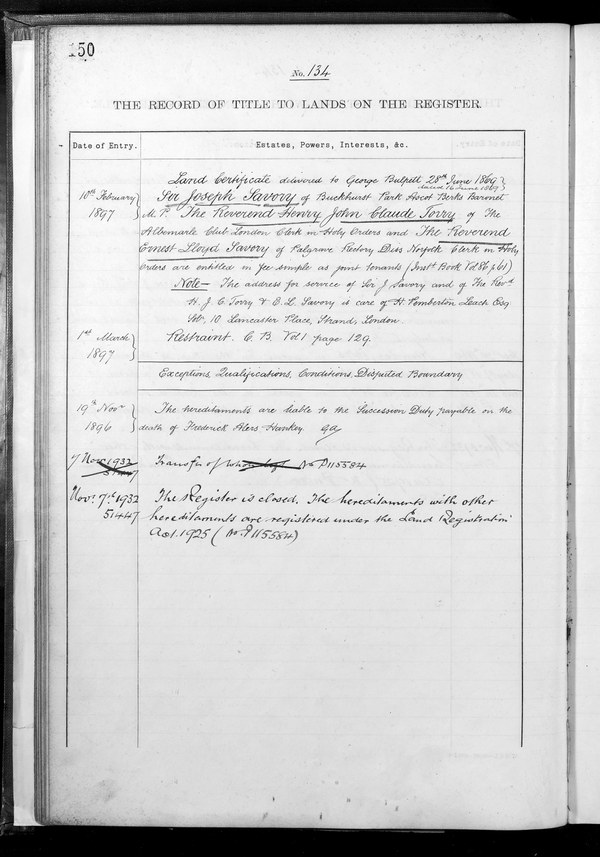 150
No. 134
THE RECORD OF TITLE TO LANDS ON THE REGISTER.
Date of Entry.
Estates, Powers, Interests, &c.
Land Certificate delivered to George Bulpett 28th June 1869
dated 16 June 1869
10th February
1897
Sir Joseph Savory of Buckhurst Park Ascot Berks Baronet
M.P. The Reverend Henry John Claude Torry of The
Albemarle Club London Clerk in Holy Orders and The Reverend
Ernest Lloyd Savory of Palgrave Rectory Diss Norfolk Clerk in Holy
Orders are entitled in fee simple as joint tenants (Inst. Book Vol 86 p 61)
Note— The address for service of Sir J Savory and of The Revd
H. J. C. Torry & E. L. Savory is care of H. Pemberton Leach Esq
10, Lancaster Place, Strand, London
1st March
1897
Restraint. C. B. Vol 1 page 129.
Exceptions, Qualifications, Conditions, Disputed Boundary
19th Novr
1896
The hereditaments are liable to the Succession Duty payable on the
death of Frederick Alers Hankey.
7 Nov 1932
51447
Transfer of whole No P115584
Nov. 7th 1932
51447
The Register is closed. The hereditaments with other
hereditaments are registered under the Land Registration
Act. 1925 (No. P115584)